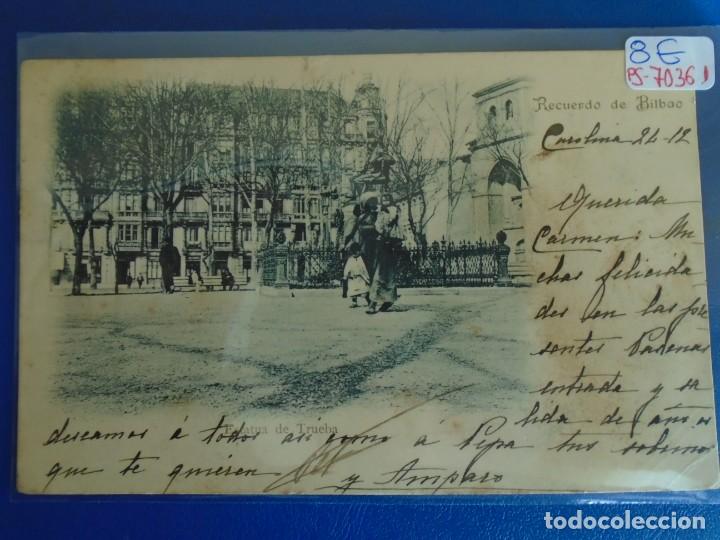 8€
PS-7036
Recuerdo de Bilbao
Carolina 24-12
Querida
Carmen: Mu
chas felicida
des en las pre
sentes Pascuas
entrada y sa
lida de años os
Estatua de Trueba
deseamos á todos asi como á Pepa tus sobrinos
que te quieren y Amparo
todocoleccion.net